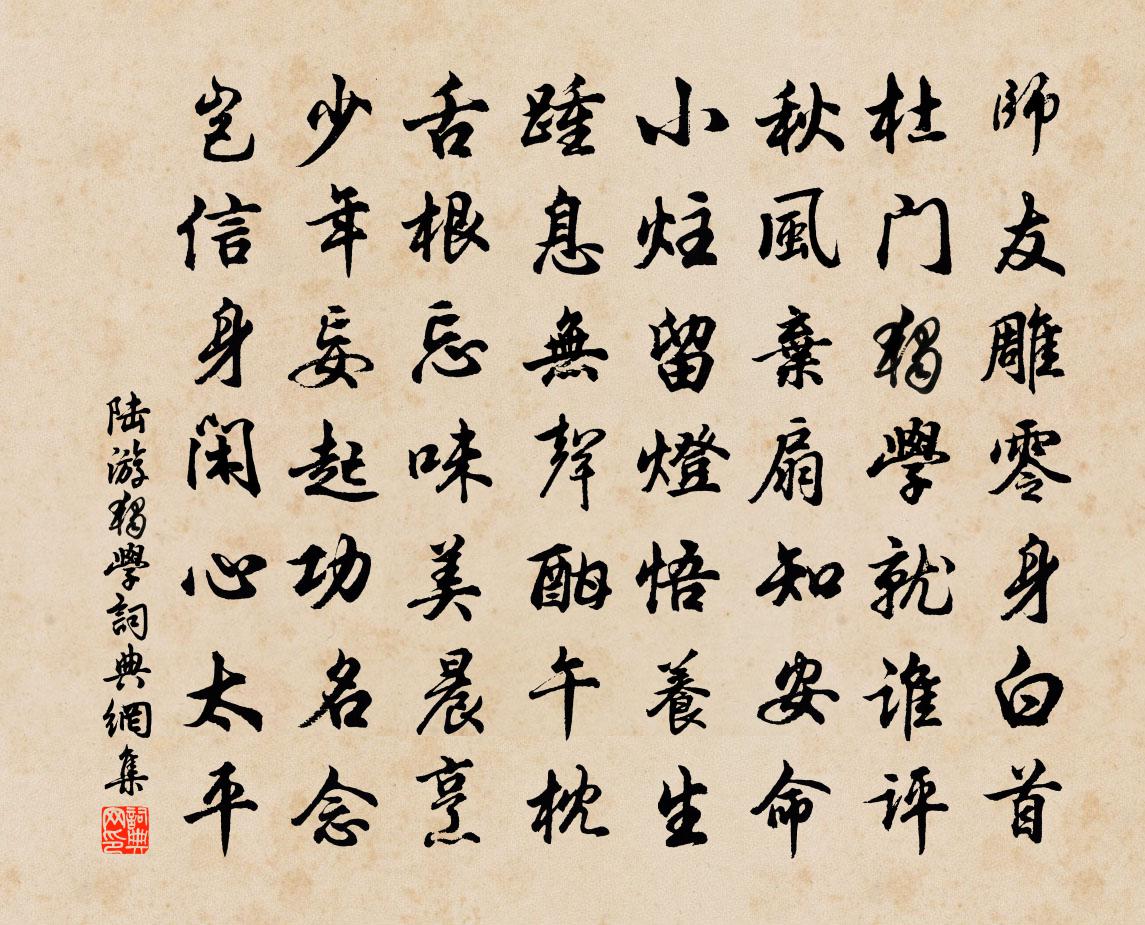 師友雕零身白首
杜门獨學就誰评
秋風棄扇知安命
小炷留燈悟養生
踵息無聲酣午枕
舌根忘味美晨烹
少年妄起功名念
岂信身闲心太平
陆游獨學詞典網集
詞典网印